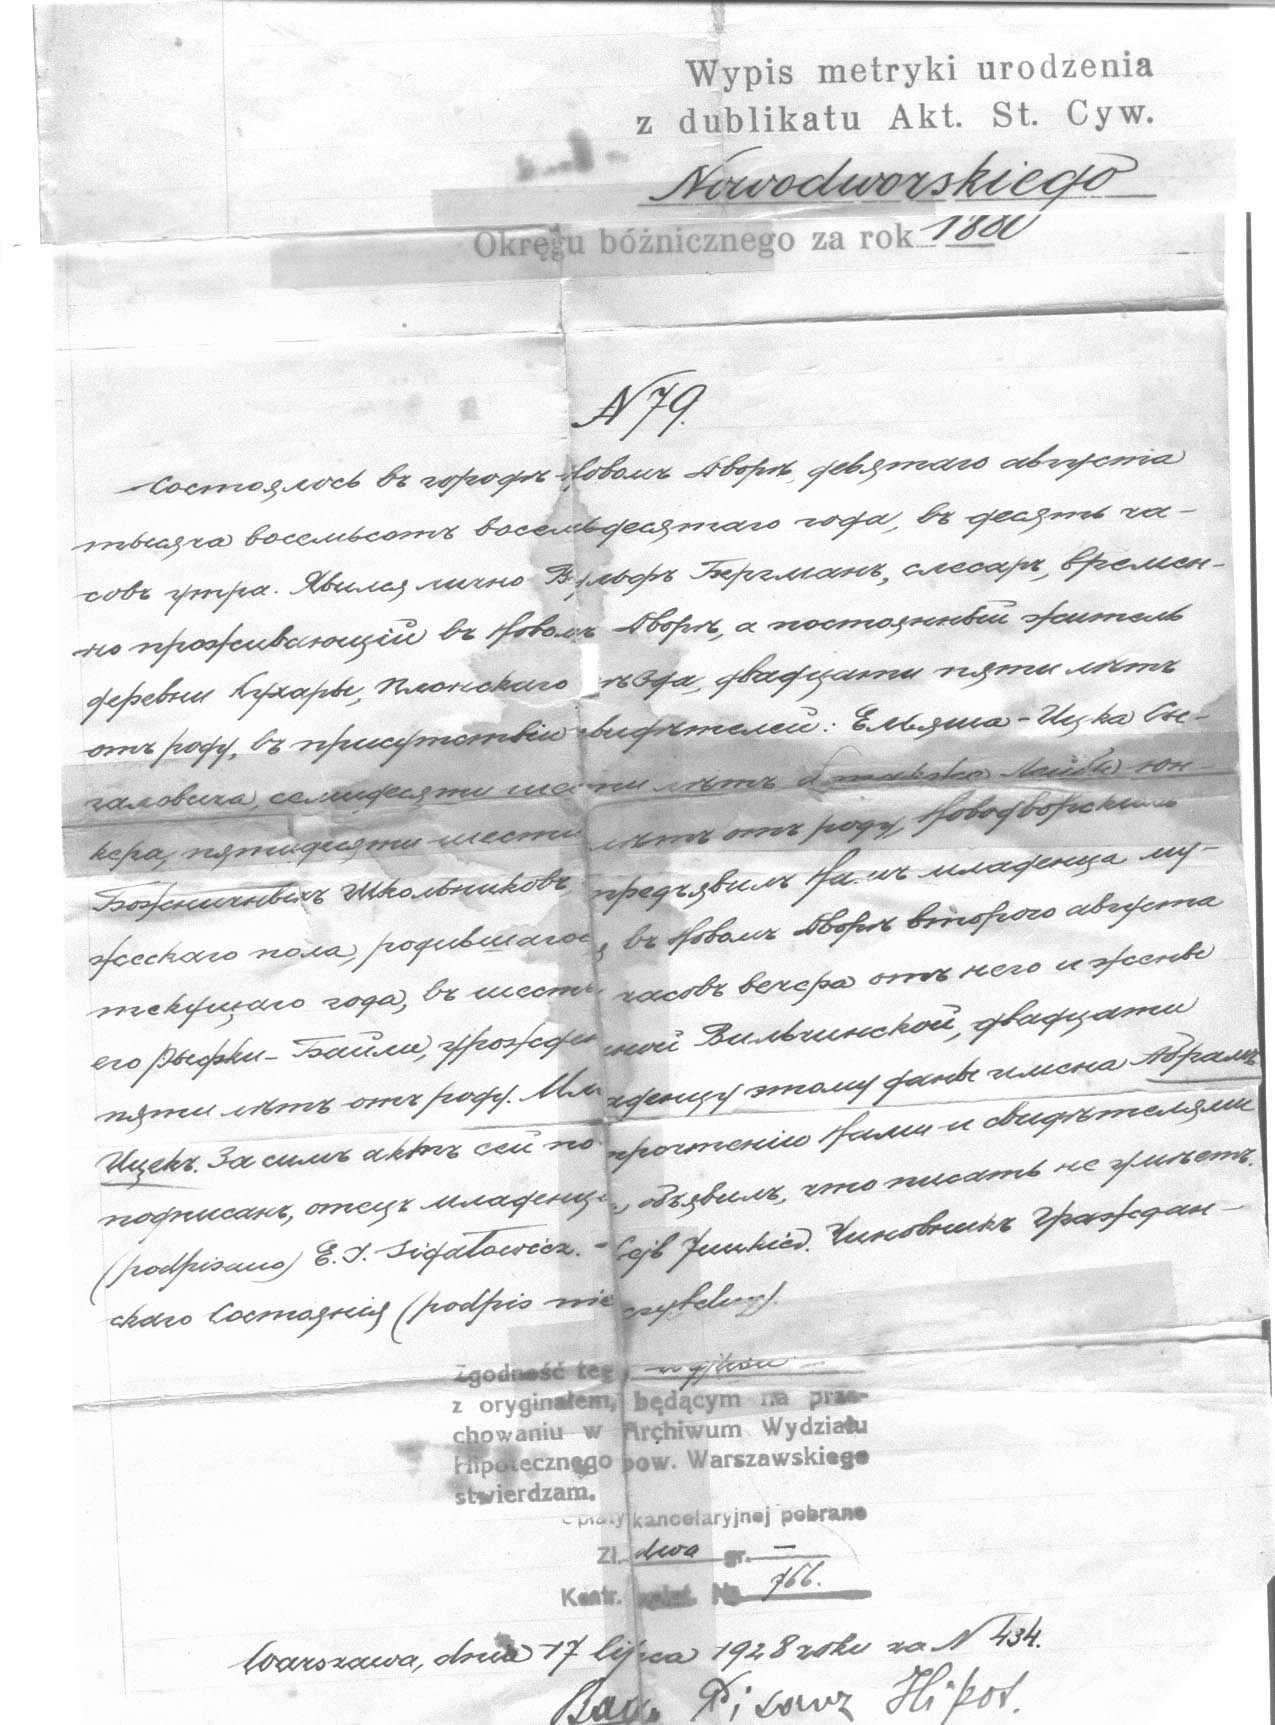 Wypis metryki urodzenia
z dublikatu Akt. St. Cyw.
Nowodworskiego
Okręgu bóżnicznego za rok 1880
N 79.
Состоялось въ городѣ Новомъ Дворѣ, девятаго августа
тысяча восемьсотъ восемьдесятаго года, въ десять ча-
совъ утра. Явился лично Вульфъ Бергманъ, слесарь, времен-
но проживающій въ Новомъ Дворѣ, а постоянный житель
деревни Кухары, Плонскаго уѣзда, двадцати пяти лѣтъ
отъ роду, въ присутствіи свидѣтелей: Ельяша-Ицка Си-
галовича, семидесяти шести лѣтъ и Лейба Юн-
кера, пятидесяти шести лѣтъ отъ роду, Новодворскихъ
Божничныхъ Школьниковъ, предъявилъ Намъ младенца му-
жескаго пола, родившагося въ Новомъ Дворѣ втораго августа
текущаго года, въ шесть часовъ вечера отъ него и жены
его Рыфки-Байли, урожденной Вильчинской, двадцати
пяти лѣтъ отъ роду. Младенцу этому даны имена Абрамъ
Ицекъ. За симъ актъ сей по прочтеніи Нами и свидѣтелями
подписанъ, отецъ младенца, объявилъ, что писать не умѣетъ.
(podpisano) E. I. Sigałowicz. - Lejb Junkier. Чиновникъ Граждан-
скаго Состоянія (podpis nieczytelny).
Zgodność tego wypisu
z oryginałem, będącym na prze-
chowaniu w Archiwum Wydziału
Hipotecznego pow. Warszawskiego
stwierdzam.
Opłaty kancelaryjnej pobrano
Zł. dwa gr. —
Kontr. kwit. № 766.
Warszawa, dnia 17 lipca 1928 roku za N 434.
Pisarz Hipot.